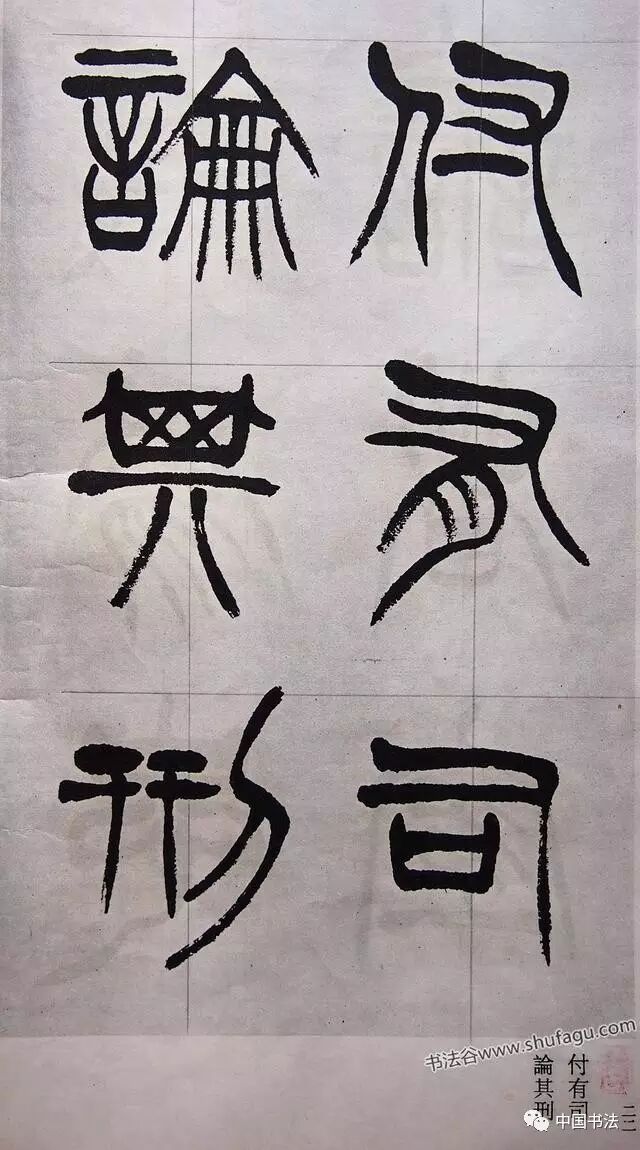 付有司
論其刑
书法谷www.shufagu.com
付有司
論其刑
二二
中国书法